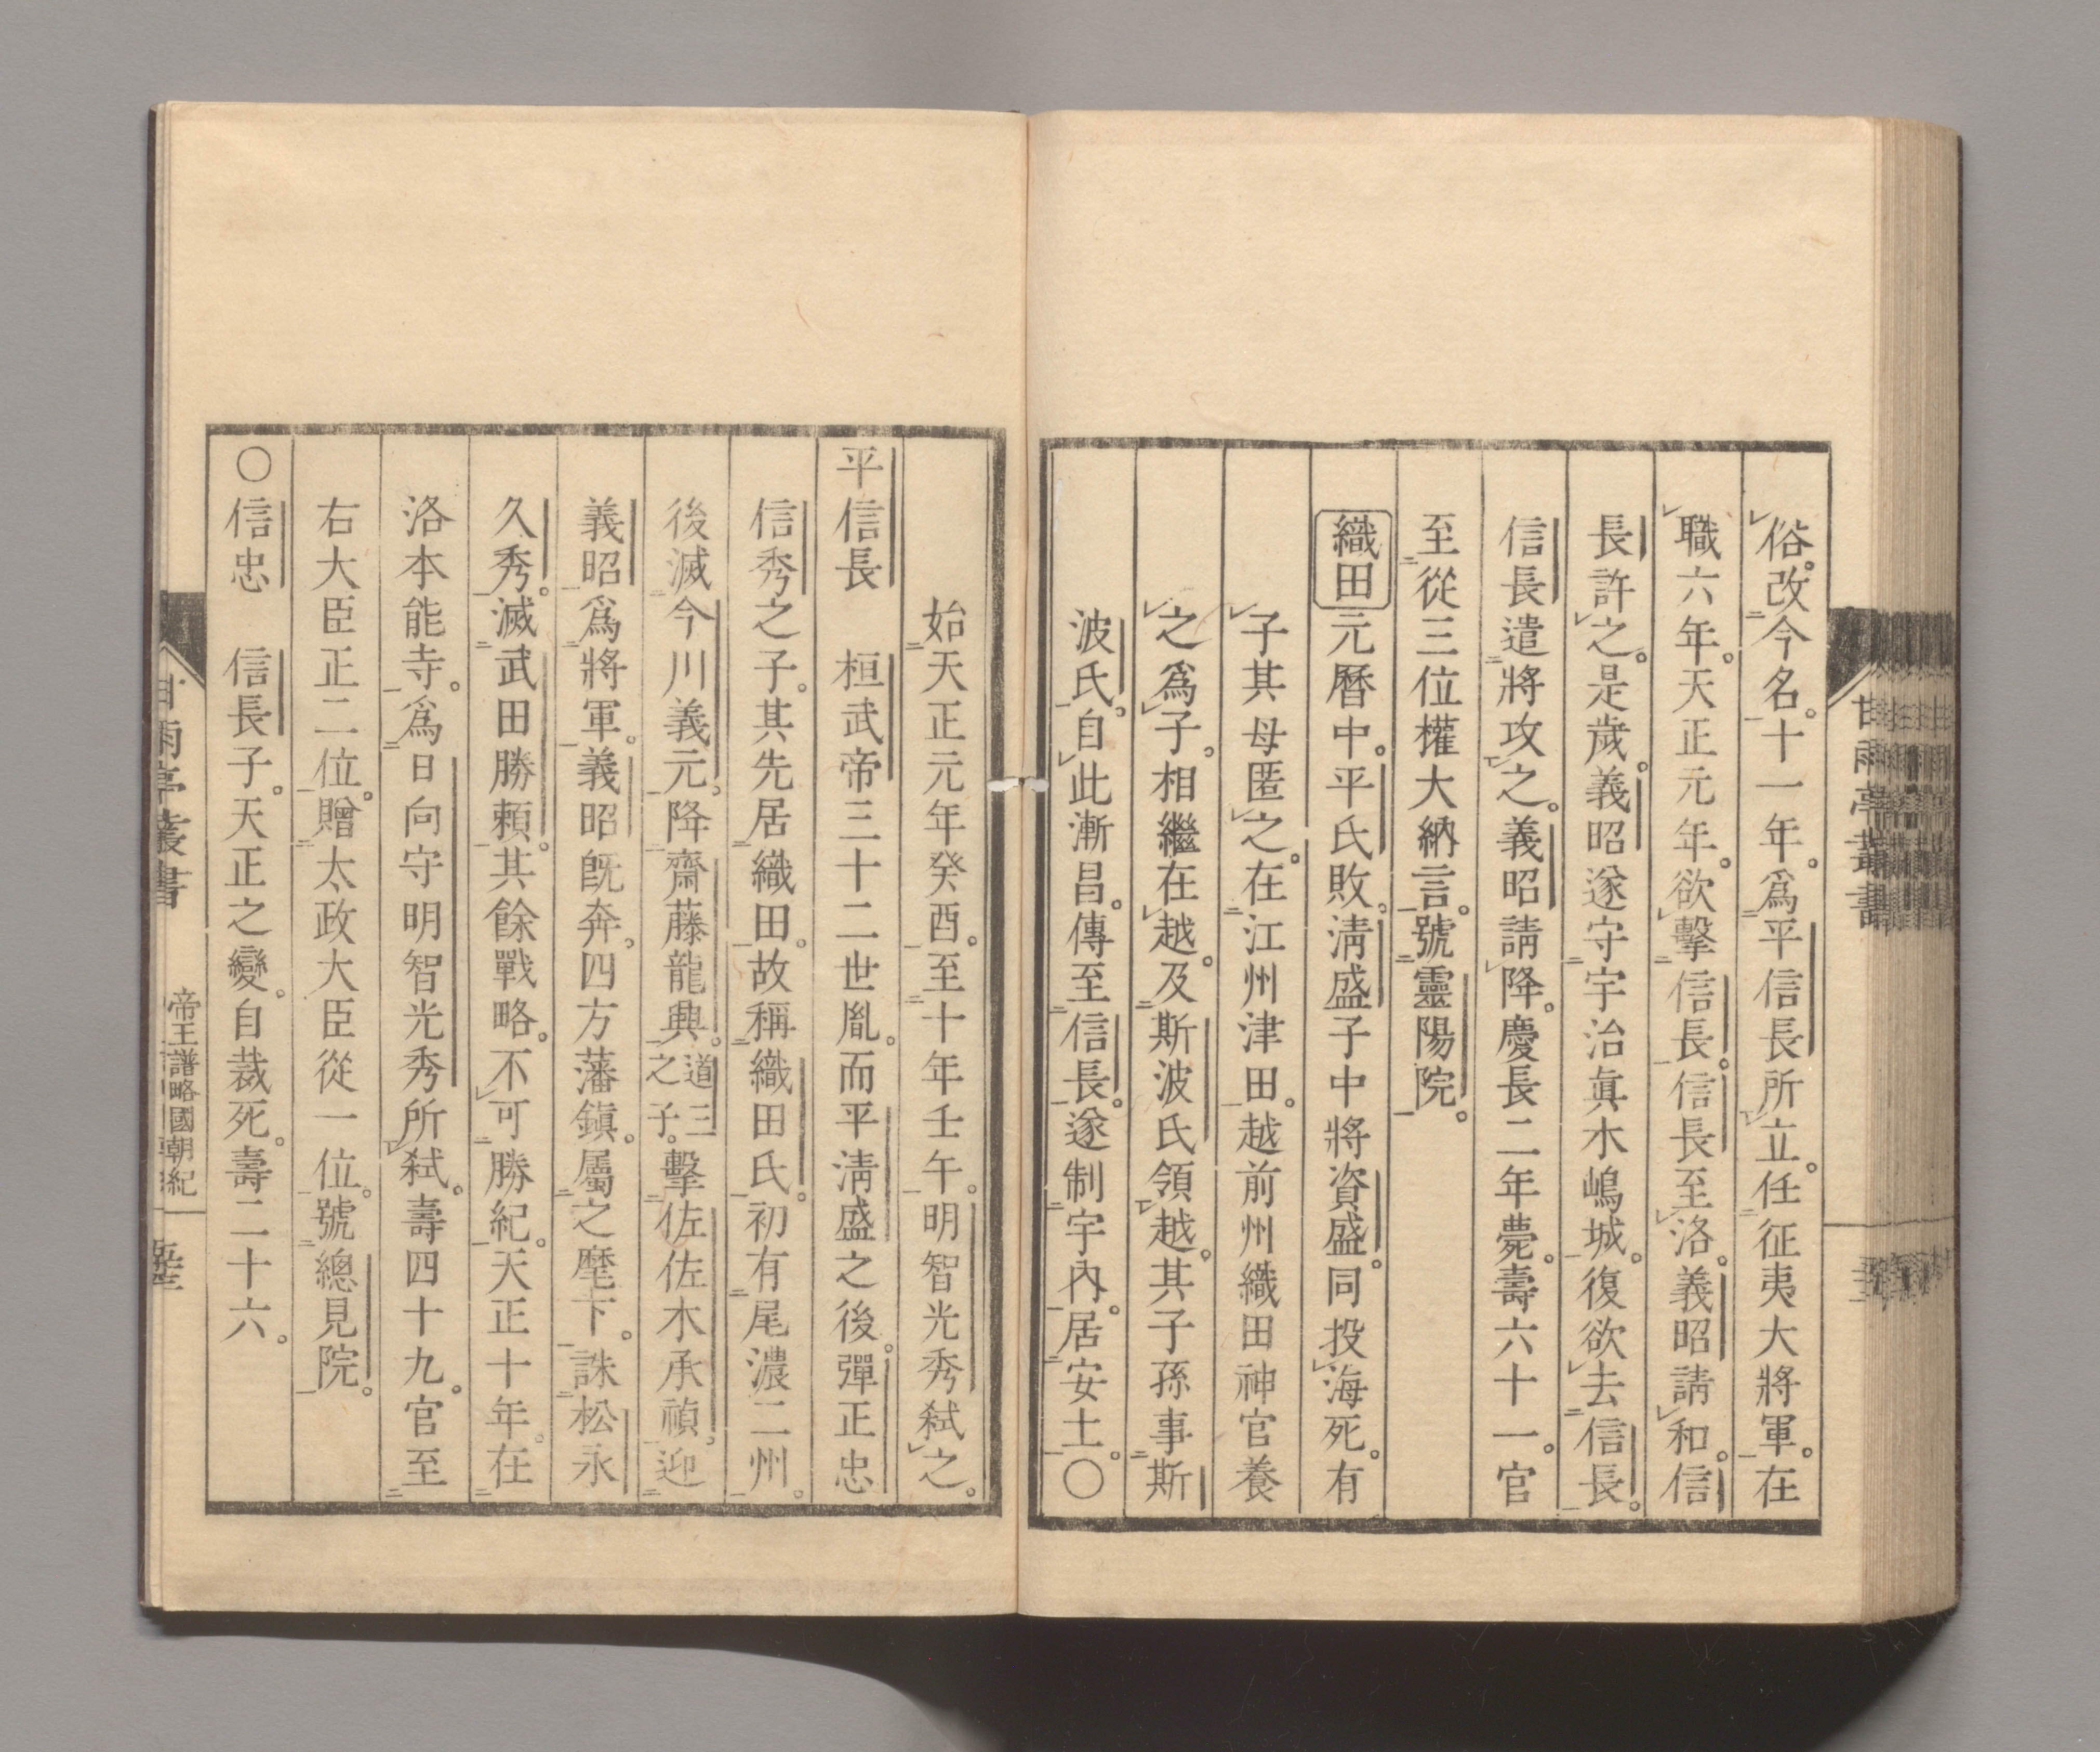 俗。改今名。十一年。爲平信長所立。任征夷大將軍。在
職六年。天正元年。欲擊信長。信長至洛。義昭請和。信
長許之。是歲。義昭遂守宇治眞木嶋城。復欲去信長。
信長遣將攻之。義昭請降。慶長二年薨。壽六十一。官
至從三位權大納言。號靈陽院。
織田元曆中。平氏敗。淸盛子中將資盛。同投海死。有
子其母匿之。在江州津田。越前州織田神官養
之爲子。相繼在越。及斯波氏領越。其子孫事斯
波氏。自此漸昌。傳至信長。遂制宇內。居安土。〇
始天正元年癸酉。至十年壬午。明智光秀弑之。
平信長 桓武帝三十二世胤。而平淸盛之後。彈正忠
信秀之子。其先居織田。故稱織田氏。初有尾濃二州。
後滅今川義元。降齋藤龍興。道三之子。擊佐佐木承禎。迎
義昭爲將軍。義昭旣奔。四方藩鎭。屬之麾下。誅松永
久秀。滅武田勝賴。其餘戰略。不可勝紀。天正十年。在
洛本能寺。爲日向守明智光秀所弑。壽四十九。官至
右大臣正二位。贈太政大臣從一位。號總見院。
〇信忠 信長子。天正之變。自裁死。壽二十六。
甘雨亭叢書 帝王譜略國朝紀
甘雨亭叢書